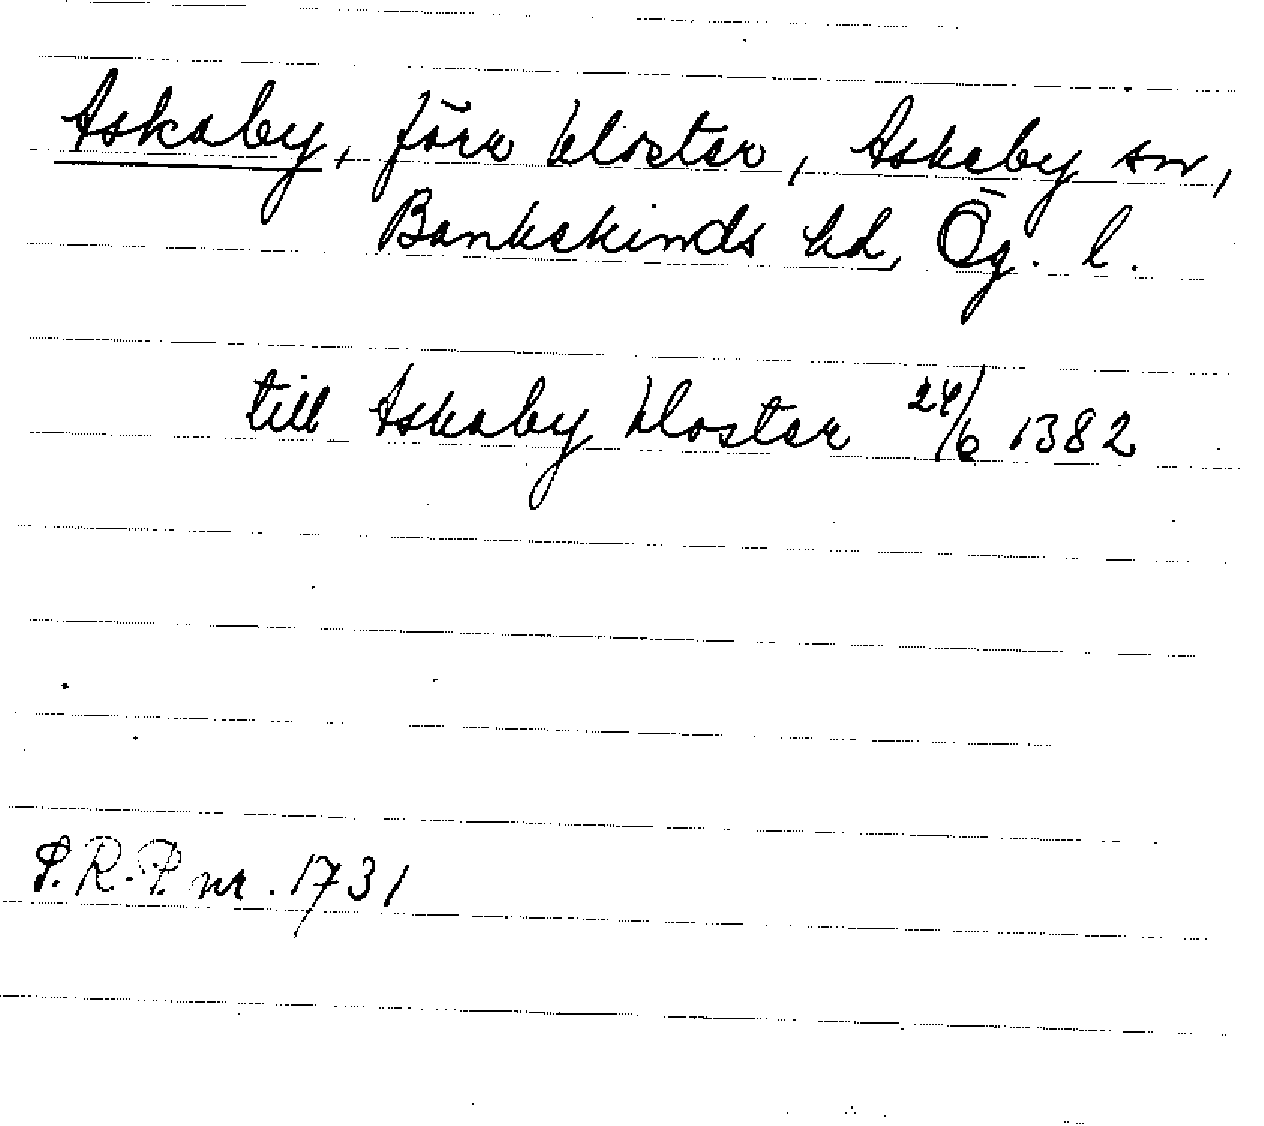 Askaby, förr kloster, Askeby sn,
Bankekinds hd, Ög. l.
till Askaby kloster 24/6 1382
P.R.P. nr. 1731